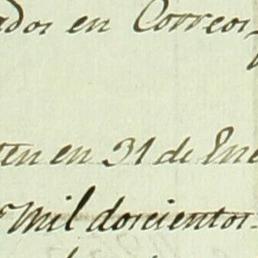 ados en Correos
ten en 31 de Ene
Mil dorcientos